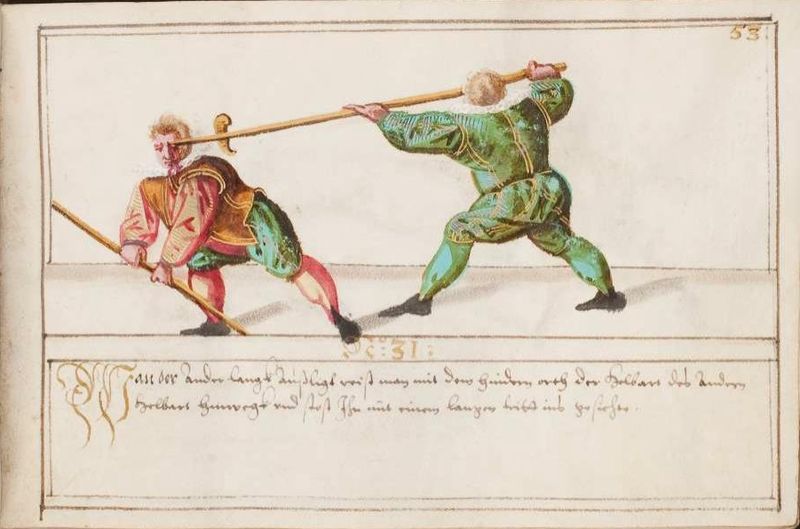 53:
No: 31:
Wan der Ander langk Außligt reist man mit dem hindern orth der Helbart des Andern
Helbart hinwegk und stost Ihn mit einem langen tritt ins gesichte.